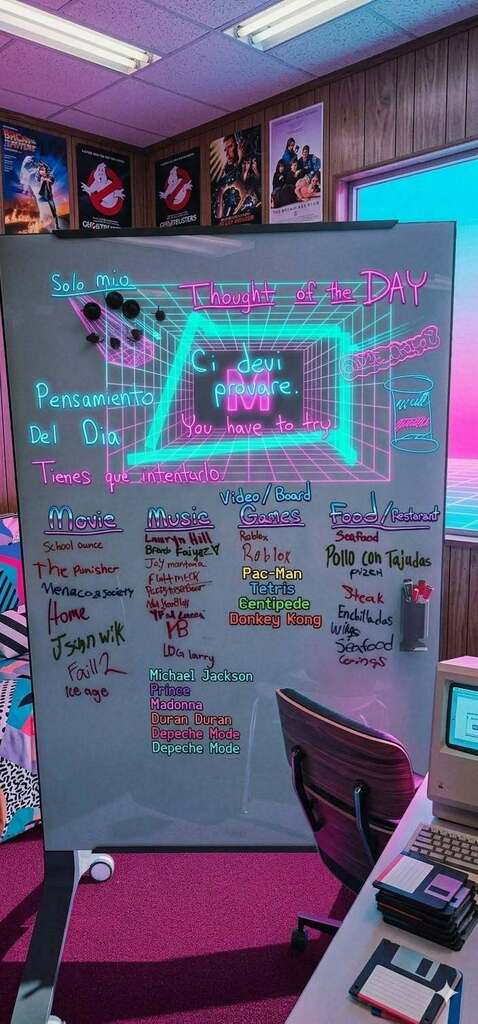 BACK
GHOSTBUSTERS
GHOSTBUSTERS
THE BREAKFAST CLUB
Solo mio
Thought of the DAY
Ci devi
provare.
M
You have to try
Pensamiento
Del Dia
Tienes que intentarlo.
Movie
School ounce
The Punisher
Menaco 2 society
Home
Faill 2
Ice age
Music
Lauryn Hill
Brent Faiyaz
LDG larry
Michael Jackson
Prince
Madonna
Duran Duran
Depeche Mode
Depeche Mode
Video/Board
Games
Roblox
Roblox
Pac-Man
Tetris
Centipede
Donkey Kong
Food/Restarant
Seafood
Pollo con Tajadas
Steak
Enchiladas
Wings
Seafood